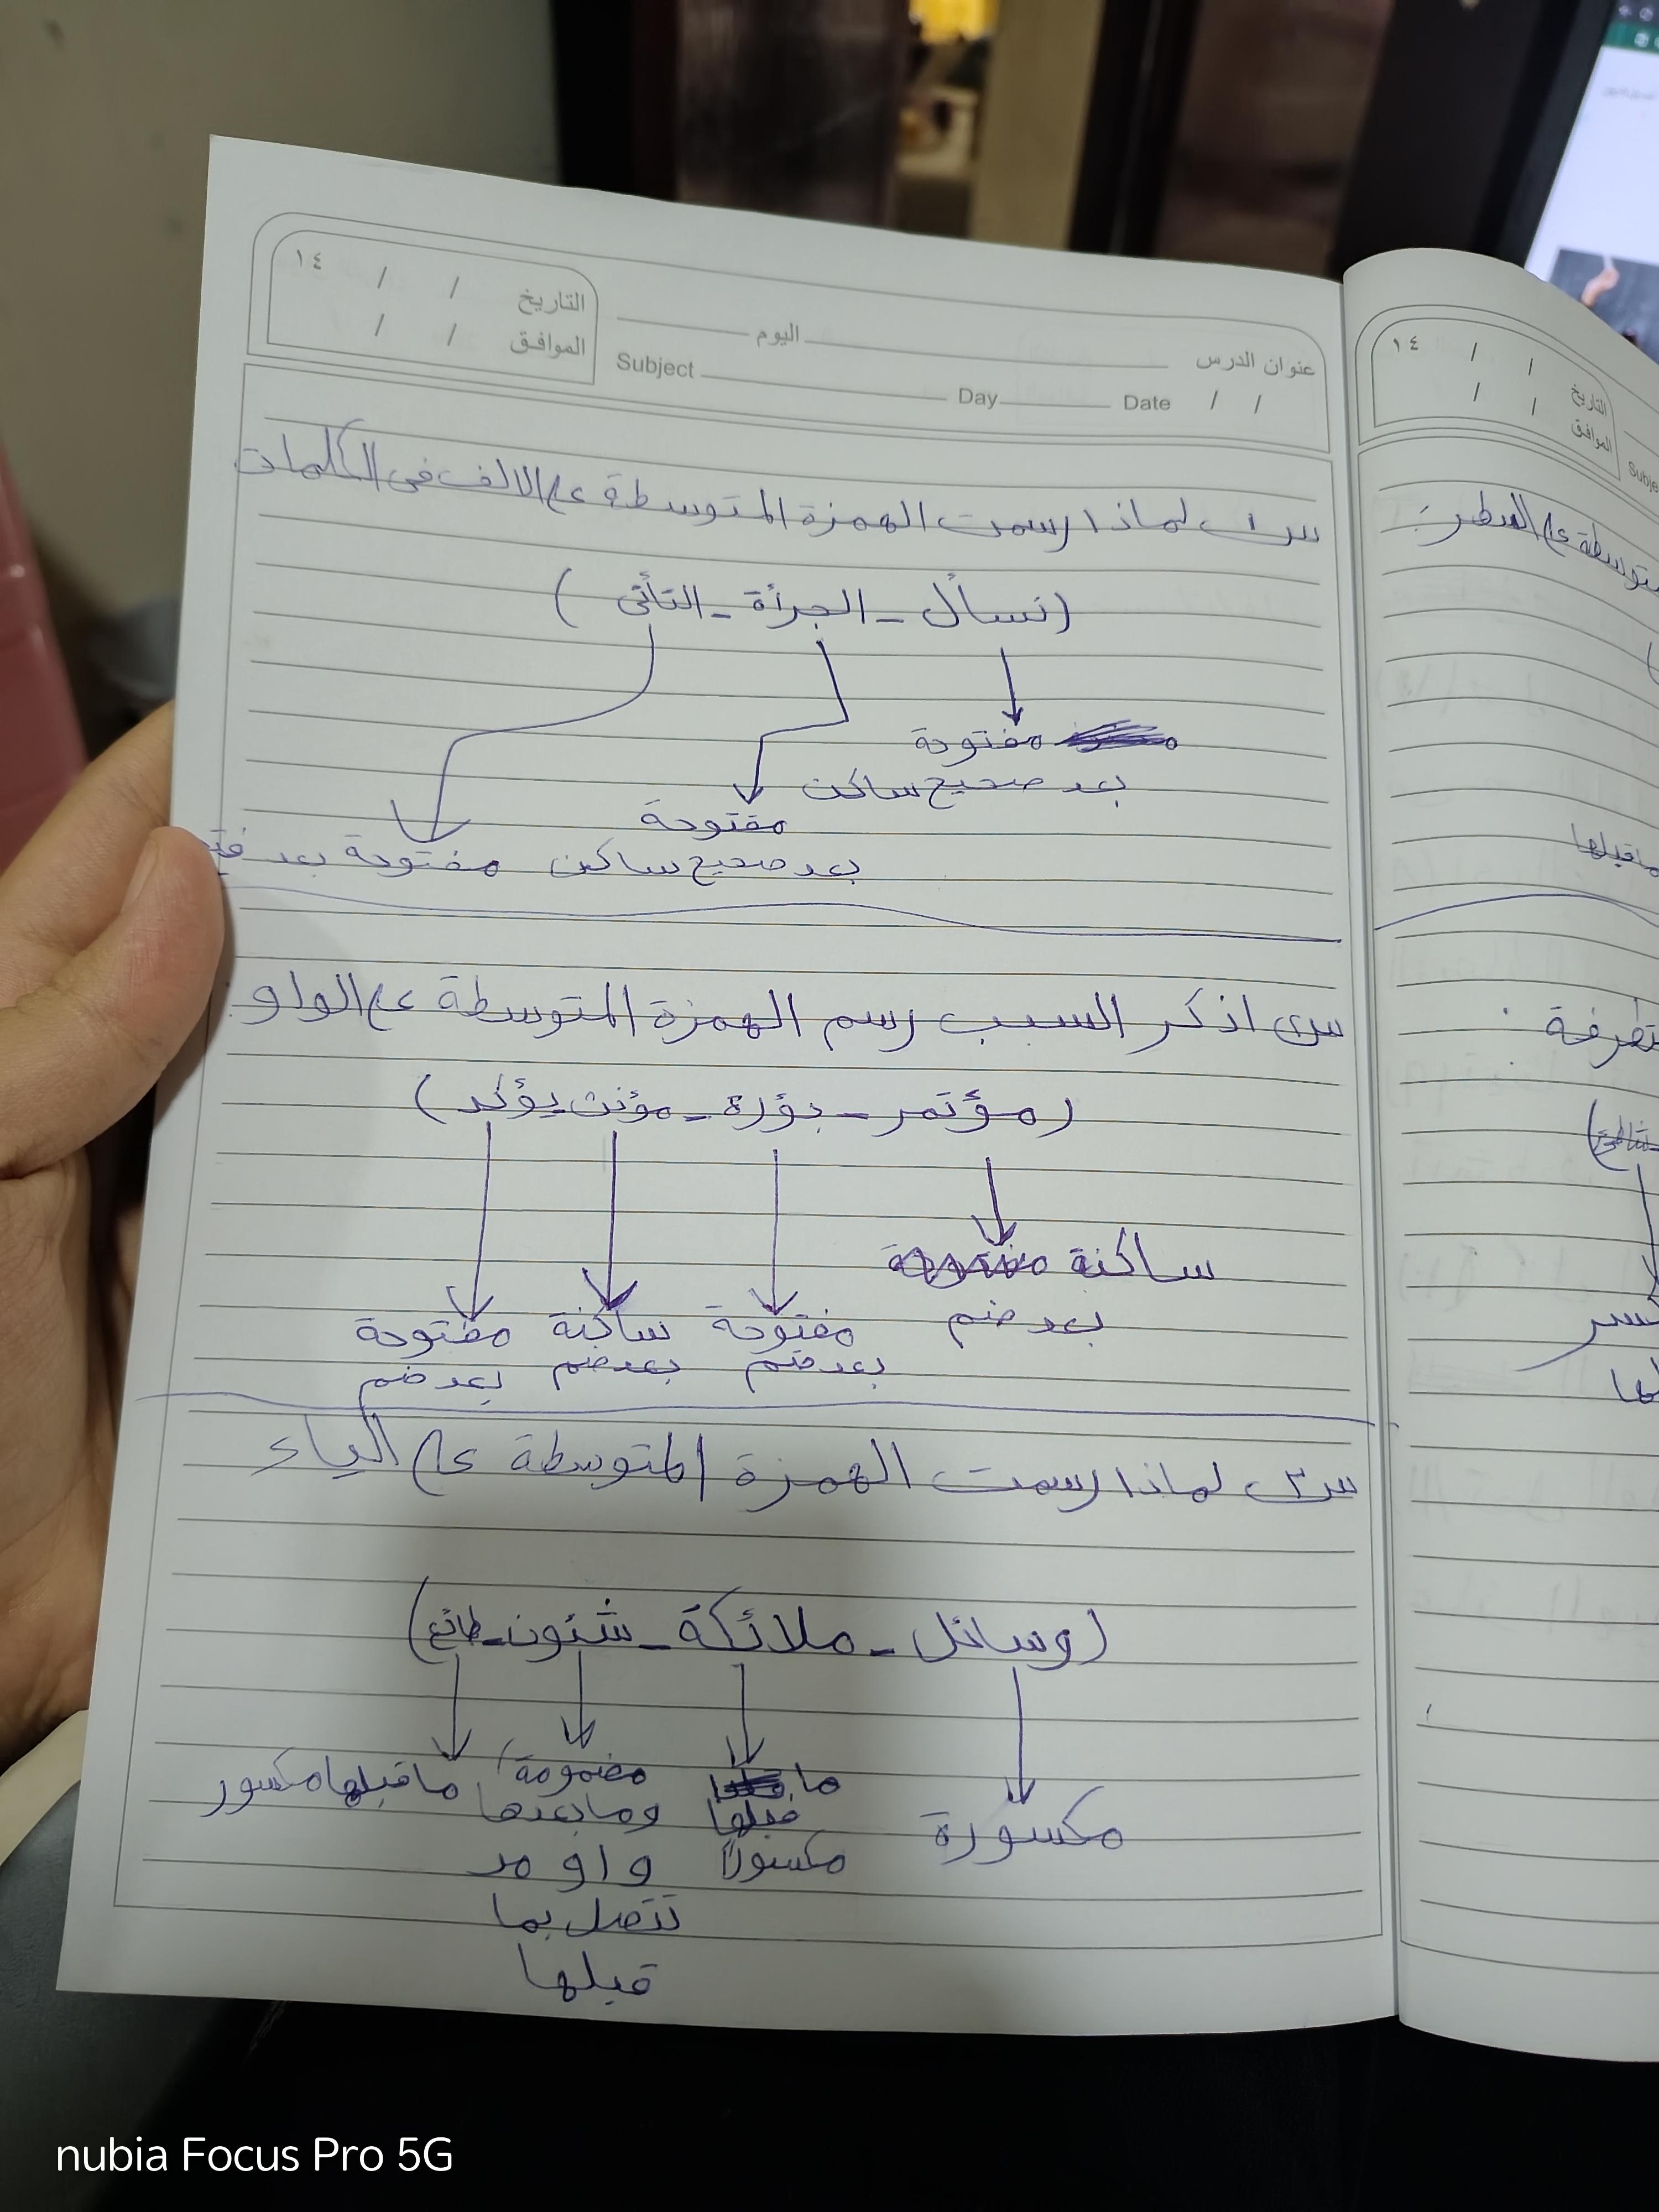 عنوان الدرس اليوم التاريخ / / ١٤
Subject Day Date / / الموافق / /
س١ لماذا رسمت الهمزة المتوسطة على الالف في الكلمات
(نسأل - الجرأة - التأنى)
مفتوحة
بعد صحيح ساكن
مفتوحة
بعد صحيح ساكن
مفتوحة بعد
س٢ اذكر السبب رسم الهمزة المتوسطة على الواو
(مؤتمر - بؤرة - مؤنث - يؤكد)
ساكنة
بعد ضم
مفتوحة
بعد ضم
ساكنة
بعد ضم
مفتوحة
بعد ضم
س٣ لماذا رسمت الهمزة المتوسطة على الياء
(وسائل - ملائكة - شئون - طائع)
مكسورة
ما
قبلها
مكسور
مضمومة
وما بعدها
واو مد
تتصل بما
قبلها
ما قبلها مكسور
التاريخ / / ١٤
الموافق / /
متوسطة على السطر
ماقبلها
nubia Focus Pro 5G